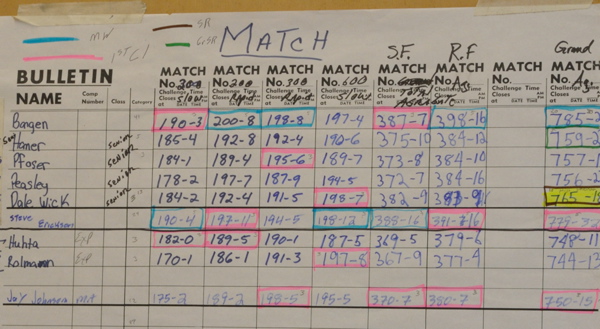 MW
SR
1st Cl
GrSR
MATCH
S.F.
R.F
Grand
BULLETIN
MATCH MATCH MATCH MATCH MATCH MATCH MATCH MATCH
No. 200 No. 200 No. 300 No. 600 No. No. Ag. No. No. Ag.
Challenge Time Closes Slow
NAME Comp Number Class Category
Bangen 190-3 200-8 198-8 197-4 387-7 398-16 785-2
Haner senior 185-4 192-8 192-4 375-10 384-12 759-2
Pfoser senior 184-1 189-4 195-6 189-7 373-8 384-10 757-1
Peasley senior 178-2 197-7 187-9 194-5 372-7 384-16 756-2
Dale Wick senior 184-2 192-4 191-5 198-7 382-9 765-18
Steve 190-4 197-11 194-5 198-12 388-16 391-716
Huhta 182-0 189-5 190-1 187-5 369-5 379-6 748-11
Rolmann 170-1 186-1 191-3 197-8 367-9 377-4 744-13
Jay Johnson 175-2 189-2 195-5 370-7 380-7 750-15